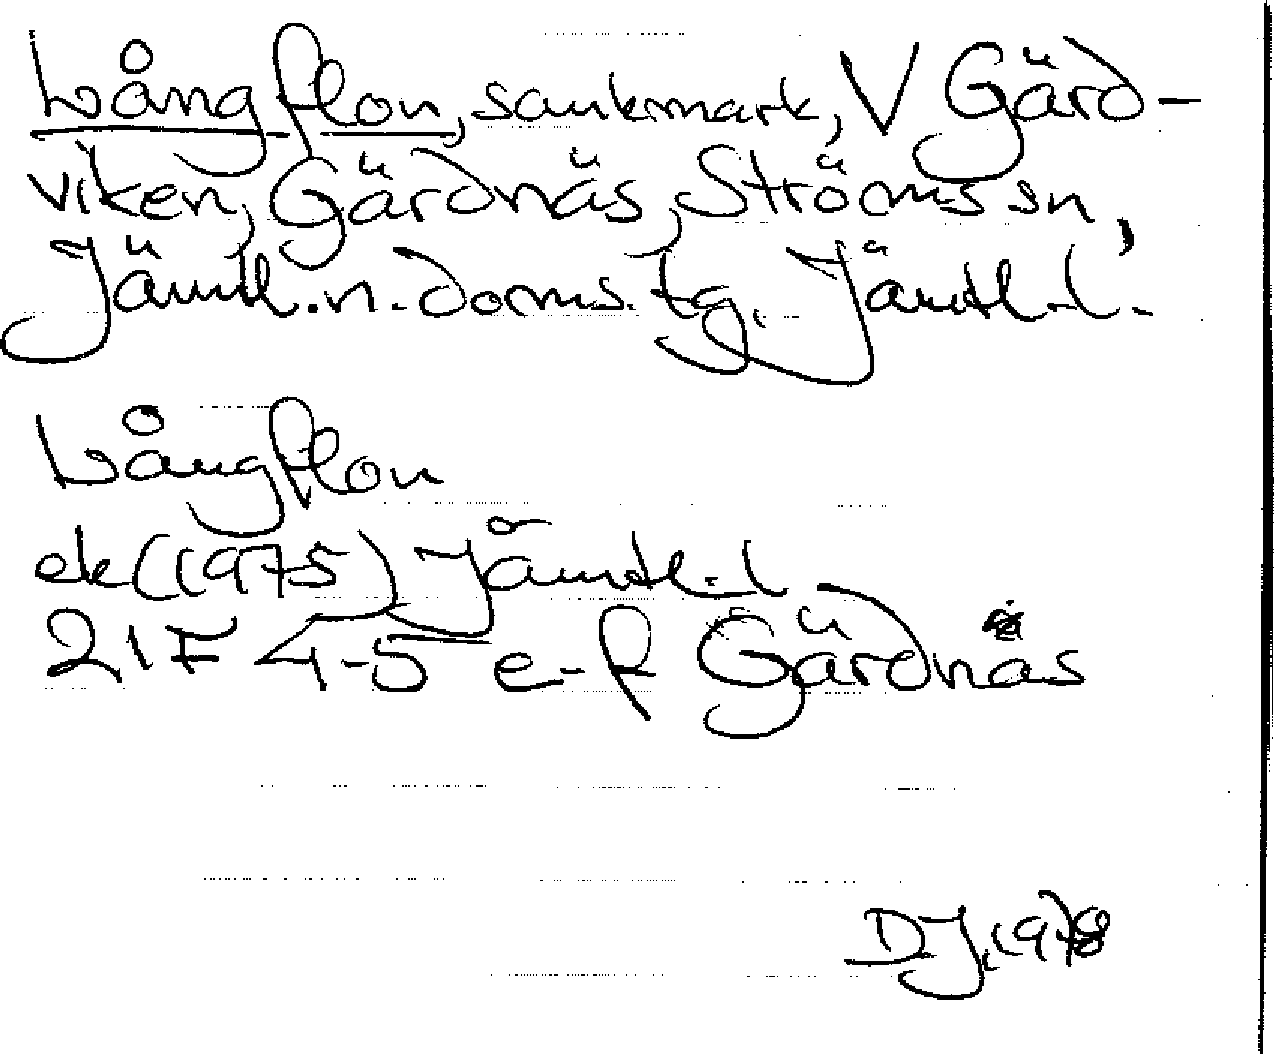 Långflon, sankmark, V Gärd-
viken, Gärdnäs, Ströms sn,
Jämtl.n.doms.tg. Jämtl.l.
Långflon
ek (1975) Jämtl.l
21F 4-5 e-f Gärdnäs
D.J. 1978